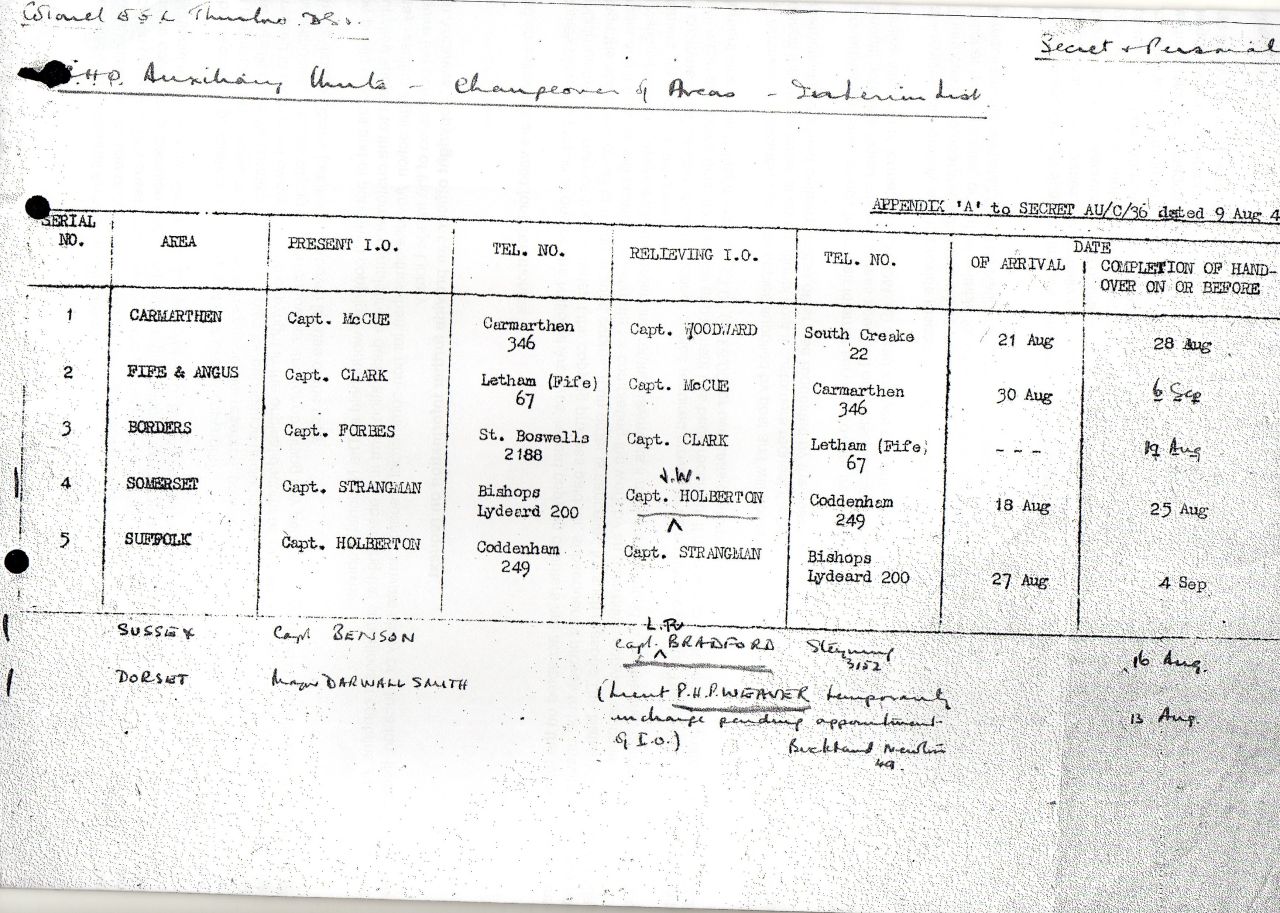 Colonel
DSO.
Secret & Personal
G.H.Q. Auxiliary Units - Changeover of Areas - Interim List.
APPENDIX 'A' to SECRET AU/C/36 dated 9 Aug 4
SERIAL NO. AREA PRESENT I.O. TEL. NO. RELIEVING I.O. TEL. NO. DATE
OF ARRIVAL COMPLETION OF HAND-
OVER ON OR BEFORE
1 CARMARTHEN Capt. McCUE Carmarthen Capt. WOODWARD South Creake 21 Aug 28 Aug
346 22
2 FIFE & ANGUS Capt. CLARK Letham (Fife) Capt. McCUE Carmarthen 30 Aug 6 Sep
67 346
3 BORDERS Capt. FORBES St. Boswells Capt. CLARK Letham (Fife) - - - 19 Aug
2188 67
J.W.
4 SOMERSET Capt. STRANGMAN Bishops Capt. HOLBERTON Coddenham 18 Aug 25 Aug
Lydeard 200 249
5 SUFFOLK Capt. HOLBERTON Coddenham Capt. STRANGMAN Bishops
249 Lydeard 200 27 Aug 4 Sep
SUSSEX Capt BENSON Capt. BRADFORD Steyning 16 Aug.
3152
DORSET Major DARWALL SMITH (Lieut P.H.P. WEAVER temporarily
in charge pending appointment 13 Aug.
of I.O.) Buckland Newton
49.